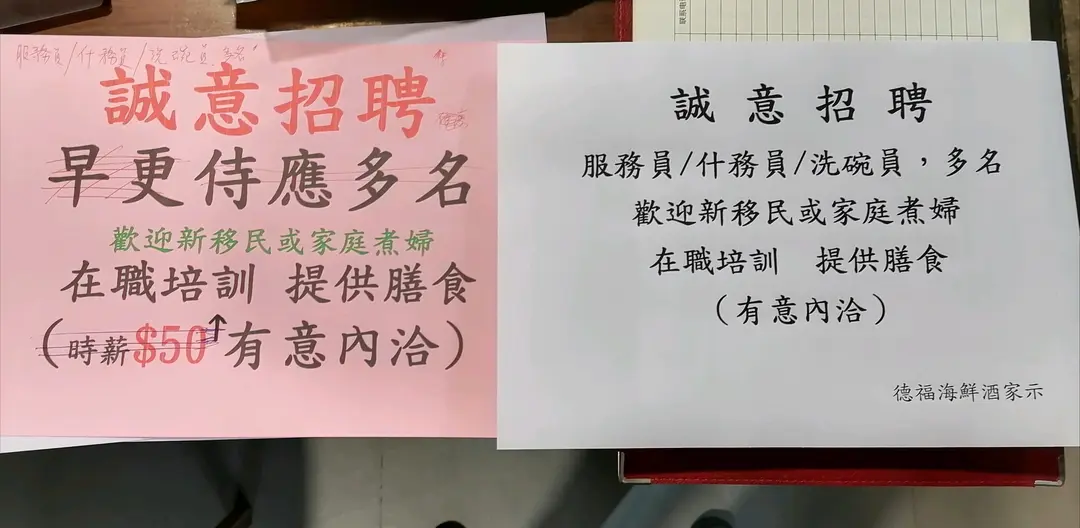 服務員/什務員/洗碗員,多名
誠意招聘
早更侍應多名
歡迎新移民或家庭煮婦
在職培訓 提供膳食
(時薪$50↑有意內洽)
联系电
誠意招聘
服務員/什務員/洗碗員,多名
歡迎新移民或家庭煮婦
在職培訓 提供膳食
(有意內洽)
德福海鮮酒家示